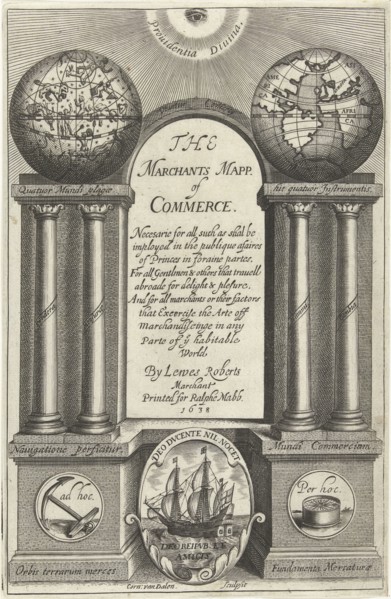 Providentia Divina.
AME
RI
CA
ASI
AFRI
CA
Quatuor Mundi plagæ
his quatuor Instrumentis.
THE
MARCHANTS MAPP.
of
COMMERCE.
Necesarie for all such as shal be
imployed in the publique afaires
of Princes in foraine partes.
For all Gentlmen & others that travell
abroade for delight & plesure.
And for all marchants or their factors
that Exercise the Arte off
Marchandiseinge in any
Parte of ẙ habitable
World.
By Lewes Roberts
Marchant
Printed for Ralphe Mabb.
1638
Nauigatione perficitur.
Mundi Commercium.
DEO DVCENTE NIL NOCET
ad hoc.
Per hoc.
AMICIS
Orbis terrarum merces
Fundamenta Mercaturæ
Corn. van Dalen.
Sculpsit